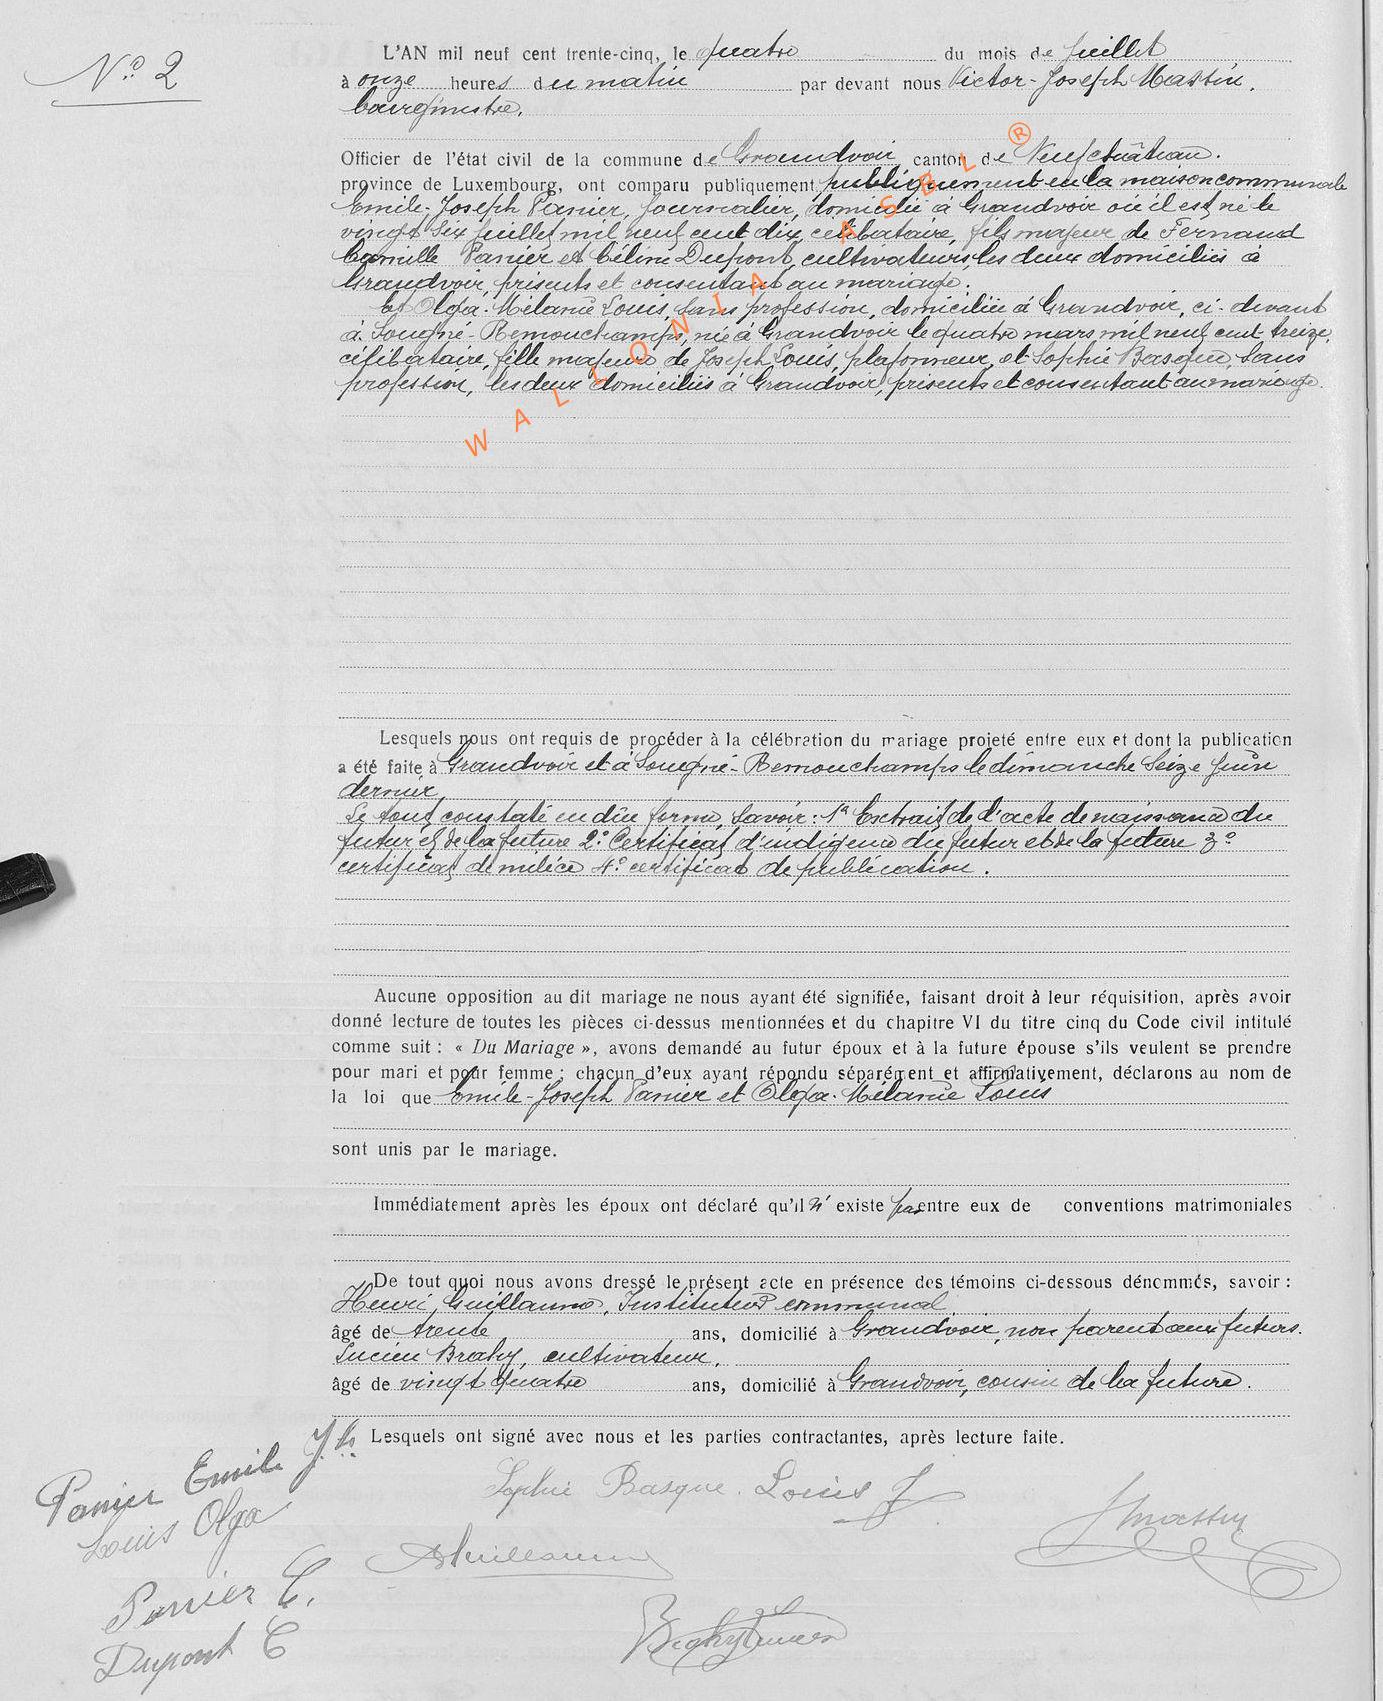 N° 2
L'AN mil neuf cent trente-cinq, le quatre du mois de juillet
à onze heures du matin par devant nous Victor-Joseph Massin,
bourgmestre.
Officier de l'état civil de la commune de Grandvoir canton de Neufchâteau.
province de Luxembourg, ont comparu publiquement publiquement en la maison communale
Emile-Joseph Panier, journalier, domicilié à Grandvoir où il est né le
vingt six juillet mil neuf cent dix, célibataire, fils majeur de Fernand
Camille Panier et Céline Dupont, cultivateurs, les deux domiciliés à
Grandvoir, présents et consentant au mariage.
Et Olga-Mélanie Louis, sans profession, domiciliée à Grandvoir, ci-devant
à Sougné-Remouchamps, née à Grandvoir le quatre mars mil neuf cent treize,
célibataire, fille majeure de Joseph Louis, plafonneur, et Sophie Basque, sans
profession, les deux domiciliés à Grandvoir, présents et consentant au mariage.
WALLONIA ASBL ®
Lesquels nous ont requis de procéder à la célébration du mariage projeté entre eux et dont la publication
a été faite à Grandvoir et à Sougné-Remouchamps le dimanche seize juin
dernier
Le tout constaté en dûe forme, savoir: 1° Extrait de l'acte de naissance du
futur et de la future 2° Certificat d'indigence du futur et de la future 3°
certificat de milice 4° certificat de publication.
Aucune opposition au dit mariage ne nous ayant été signifiée, faisant droit à leur réquisition, après avoir
donné lecture de toutes les pièces ci-dessus mentionnées et du chapitre VI du titre cinq du Code civil intitulé
comme suit : « Du Mariage », avons demandé au futur époux et à la future épouse s'ils veulent se prendre
pour mari et pour femme ; chacun d'eux ayant répondu séparément et affirmativement, déclarons au nom de
la loi que Emile-Joseph Panier et Olga-Mélanie Louis
sont unis par le mariage.
Immédiatement après les époux ont déclaré qu'il n'existe pas entre eux de conventions matrimoniales
De tout quoi nous avons dressé le présent acte en présence des témoins ci-dessous dénommés, savoir :
Henri Guillaume, Instituteur communal
âgé de trente ans, domicilié à Grandvoir, non parent aux futurs.
Lucien Brahy, cultivateur,
âgé de vingt quatre ans, domicilié à Grandvoir, cousin de la future.
Lesquels ont signé avec nous et les parties contractantes, après lecture faite.
Panier Emile J.h
Louis Olga
Sophie Basque. Louis J
Panier C.
Dupont C